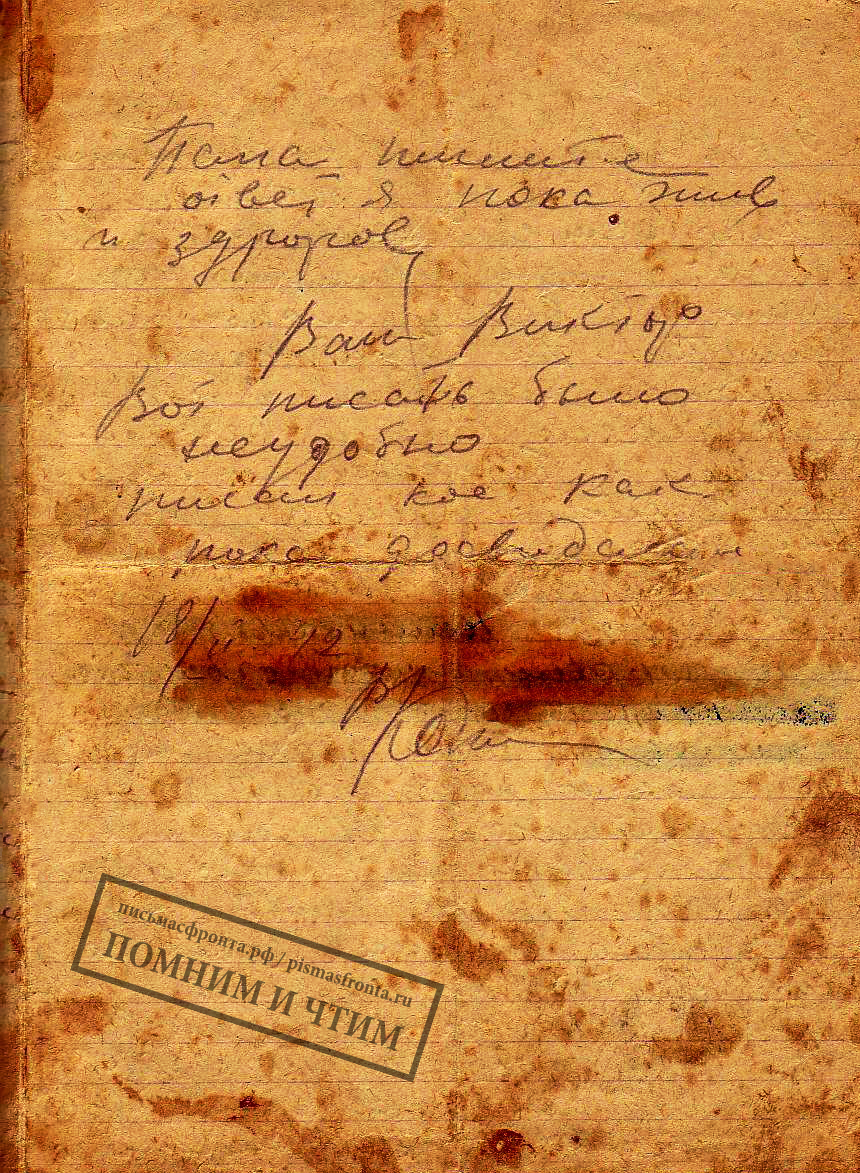 Папа пишите
ответ я пока жив
и здоров
Ваш Виктор
Вот писать было
неудобно
писал кое как
пока досвидания
18/
письмасфронта.рф / pismasfronta.ru
ПОМНИМ И ЧТИМ